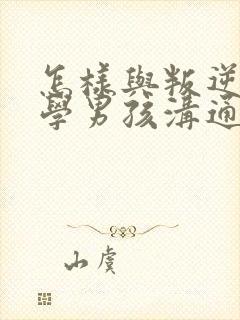 怎樣與叛逆
學男孩溝通
山虞